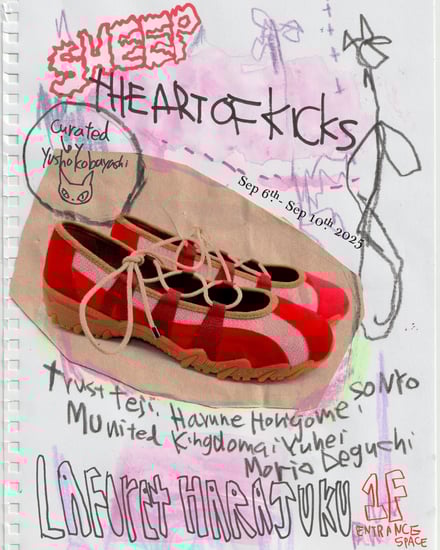 SHEEP
THE ART OF KICKS
Curated
by
Yusho Kobayashi
Sep 6th.- Sep 10th. 2025
trust teji. Harune Hongome, sonto
MUnited Kingdom ai Yuhei
Mario Deguchi
LAFORET HARAJUKU 1F
ENTRANCE
SPACE